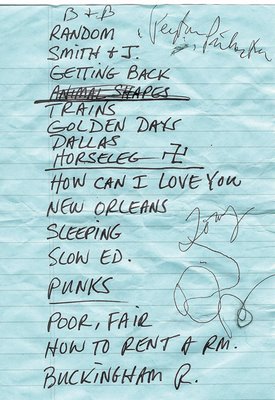 B + B
RANDOM
SMITH + J.
GETTING BACK
ANIMAL SHAPES
TRAINS
GOLDEN DAYS
DALLAS
HORSELEG
HOW CAN I LOVE YOU
NEW ORLEANS
SLEEPING
SLOW ED.
PUNKS
POOR, FAIR
HOW TO RENT A RM.
BUCKINGHAM R.
Tony